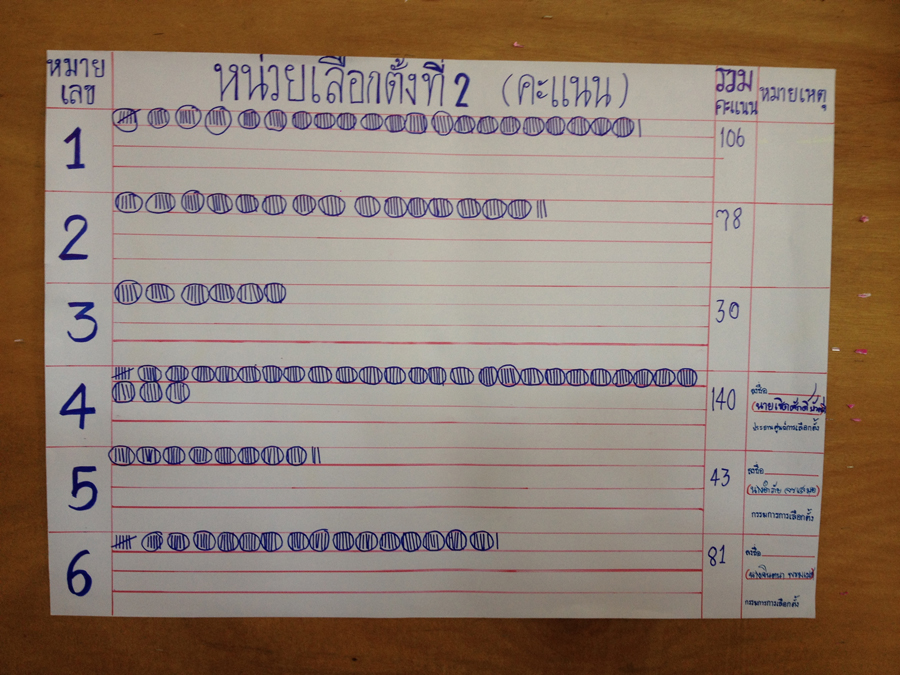 หมาย
เลข
หน่วยเลือกตั้งที่ 2 (คะแนน)
รวม
คะแนน
หมายเหตุ
1
106
2
78
3
30
4
140
ลงชื่อ
ประธานศูนย์การเลือกตั้ง
5
43
ลงชื่อ
กรรมการการเลือกตั้ง
6
81
ลงชื่อ
กรรมการการเลือกตั้ง